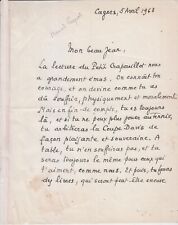 Cagnes, 5 Avril 1968
Mon beau Jean.
La lecture du Petit Crapouillot nous
a grandement émus. On connaît ton
courage, et on devine comme tu as
dû souffrir, physiquement et moralement
Mais en fin de compte, tu es toujours
là, et si tu ne peux plus jouer au tennis,
tu arbitreras la Coupe Davis de
façon plaisante et souveraine. A
table, tu n'en souffriras pas, et tu
seras toujours le même pour ceux qui
t'aiment, comme nous. Et puis, tu feras
des livres, qui seront peut être encore